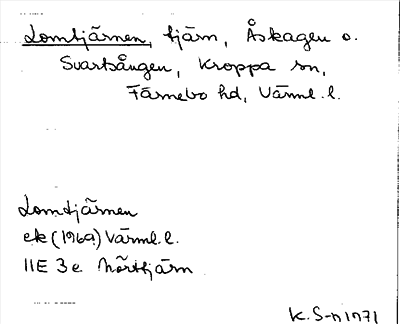 Lomtjärnen, tjärn, Åskagen o.
Svartsången, Kroppa sn,
Färnebo hd, Värml. l.
Lomtjärnen
ek (1969) Värml. l.
11E 3e Mörttjärn
K. S-n 1971